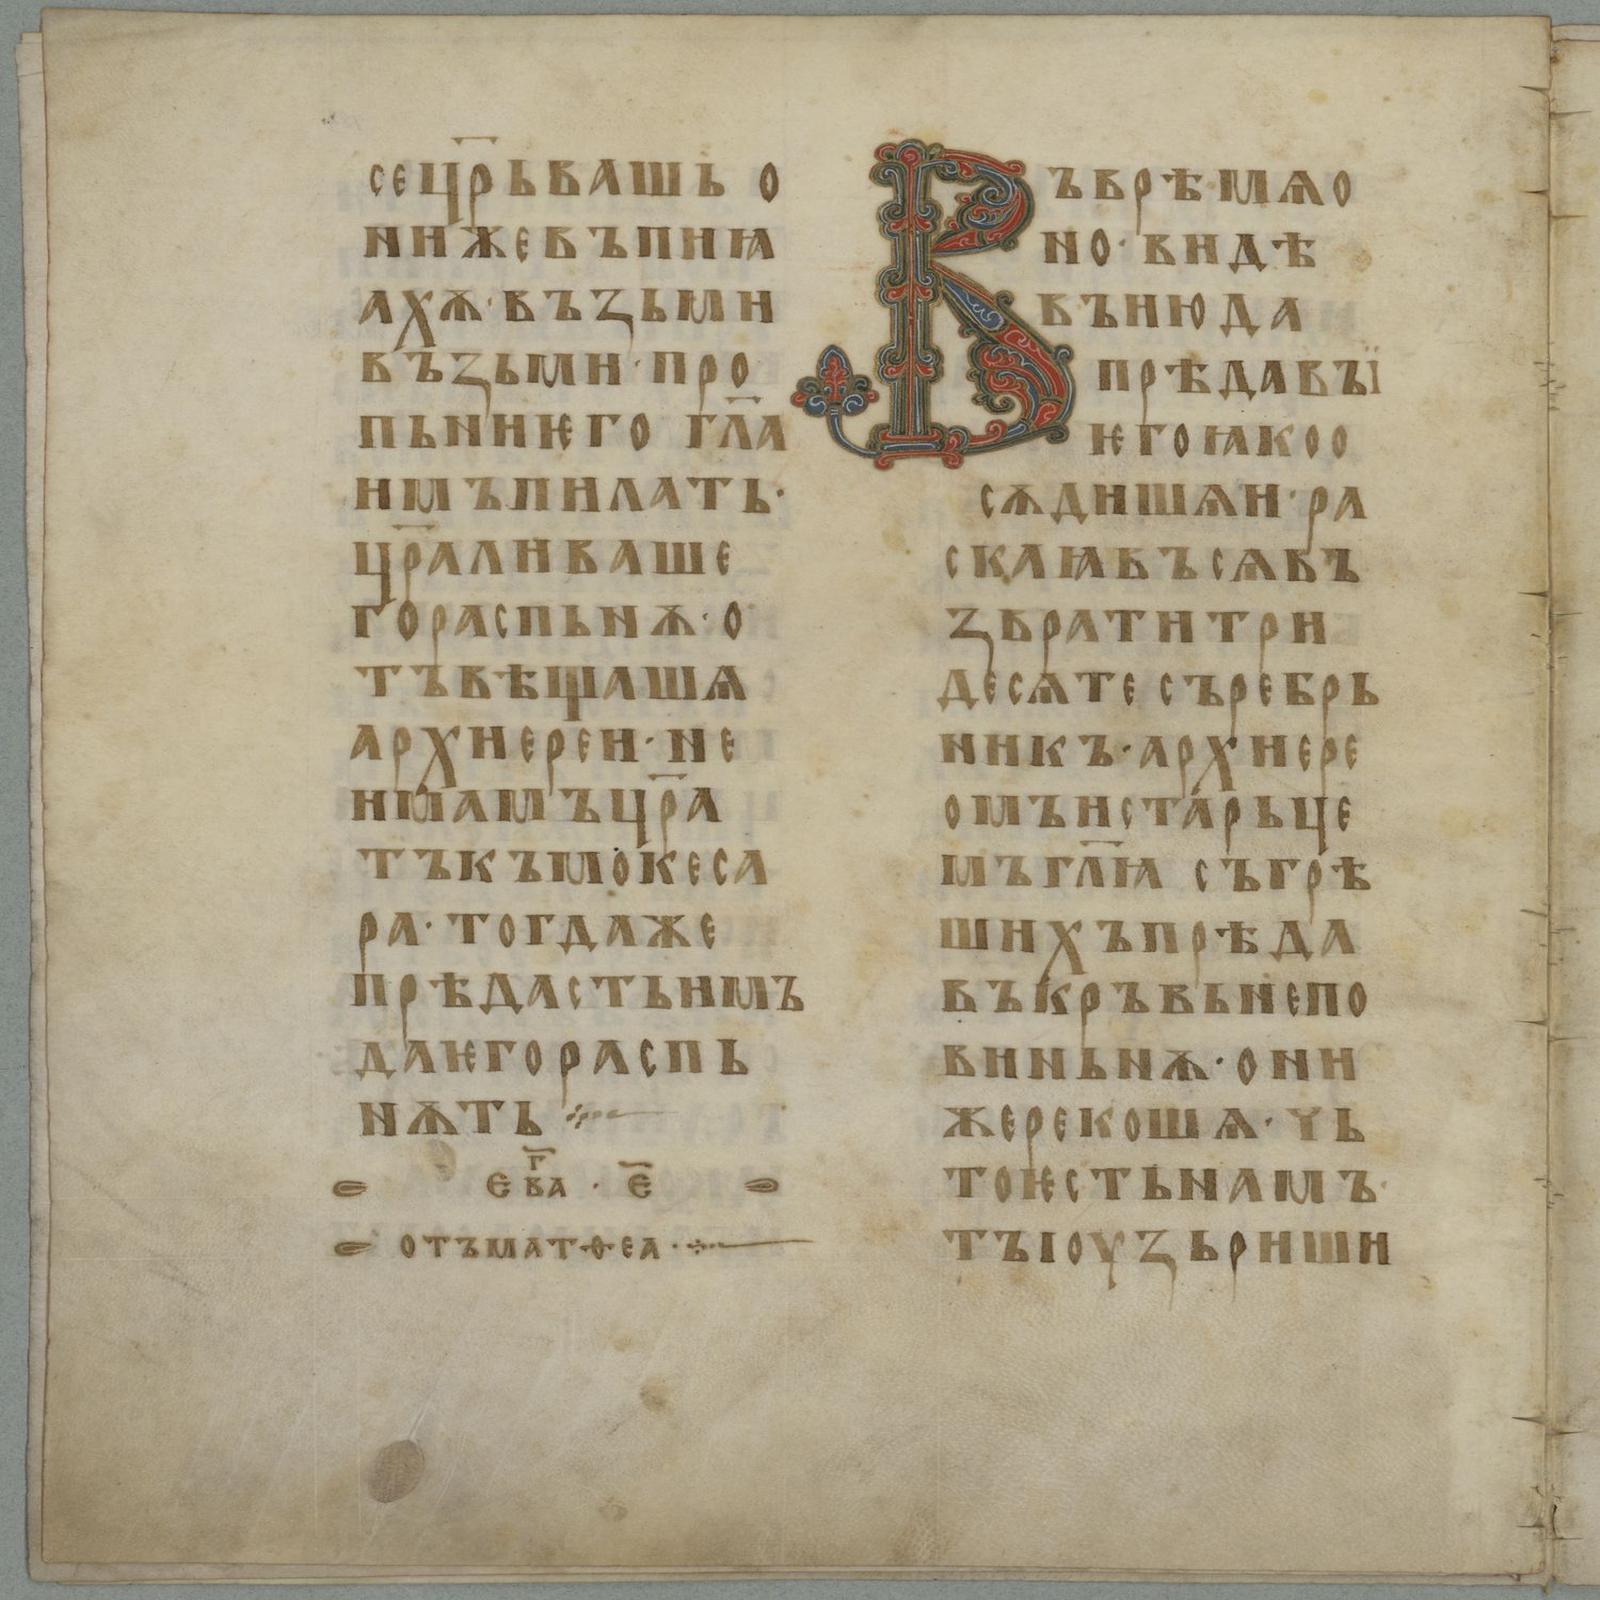 сец҃рьвашь о
нижевъпиꙗ
ахѫ·въꙁьми
въꙁьми·про
пьниѥго гл҃а
имъпилатъ·
цр҃аливаше
гораспьнѫ·о
тъвѣщашѧ
архиереи·не
имамъцр҃а
тъкъмокеса
ра·тогдаже
прѣдастьимъ
даѥгораспь
нѫть
ева҃г · е҃
отъматѳеа·
Въврѣмѧо
но·видѣ
въиюда
прѣдавъі
ѥгоꙗкоо
сѫдишѧи·ра
скаꙗвъсѧвъ
ꙁвратитри
десѧтесъребрь
никъ·архиере
омъистарьце
мъгл҃ꙗ съгрѣ
шихъпрѣда
въкръвьнепо
виньнѫ·они
жерекошѧ·чь
тоѥстьнамъ·
тъіоуꙁьриши